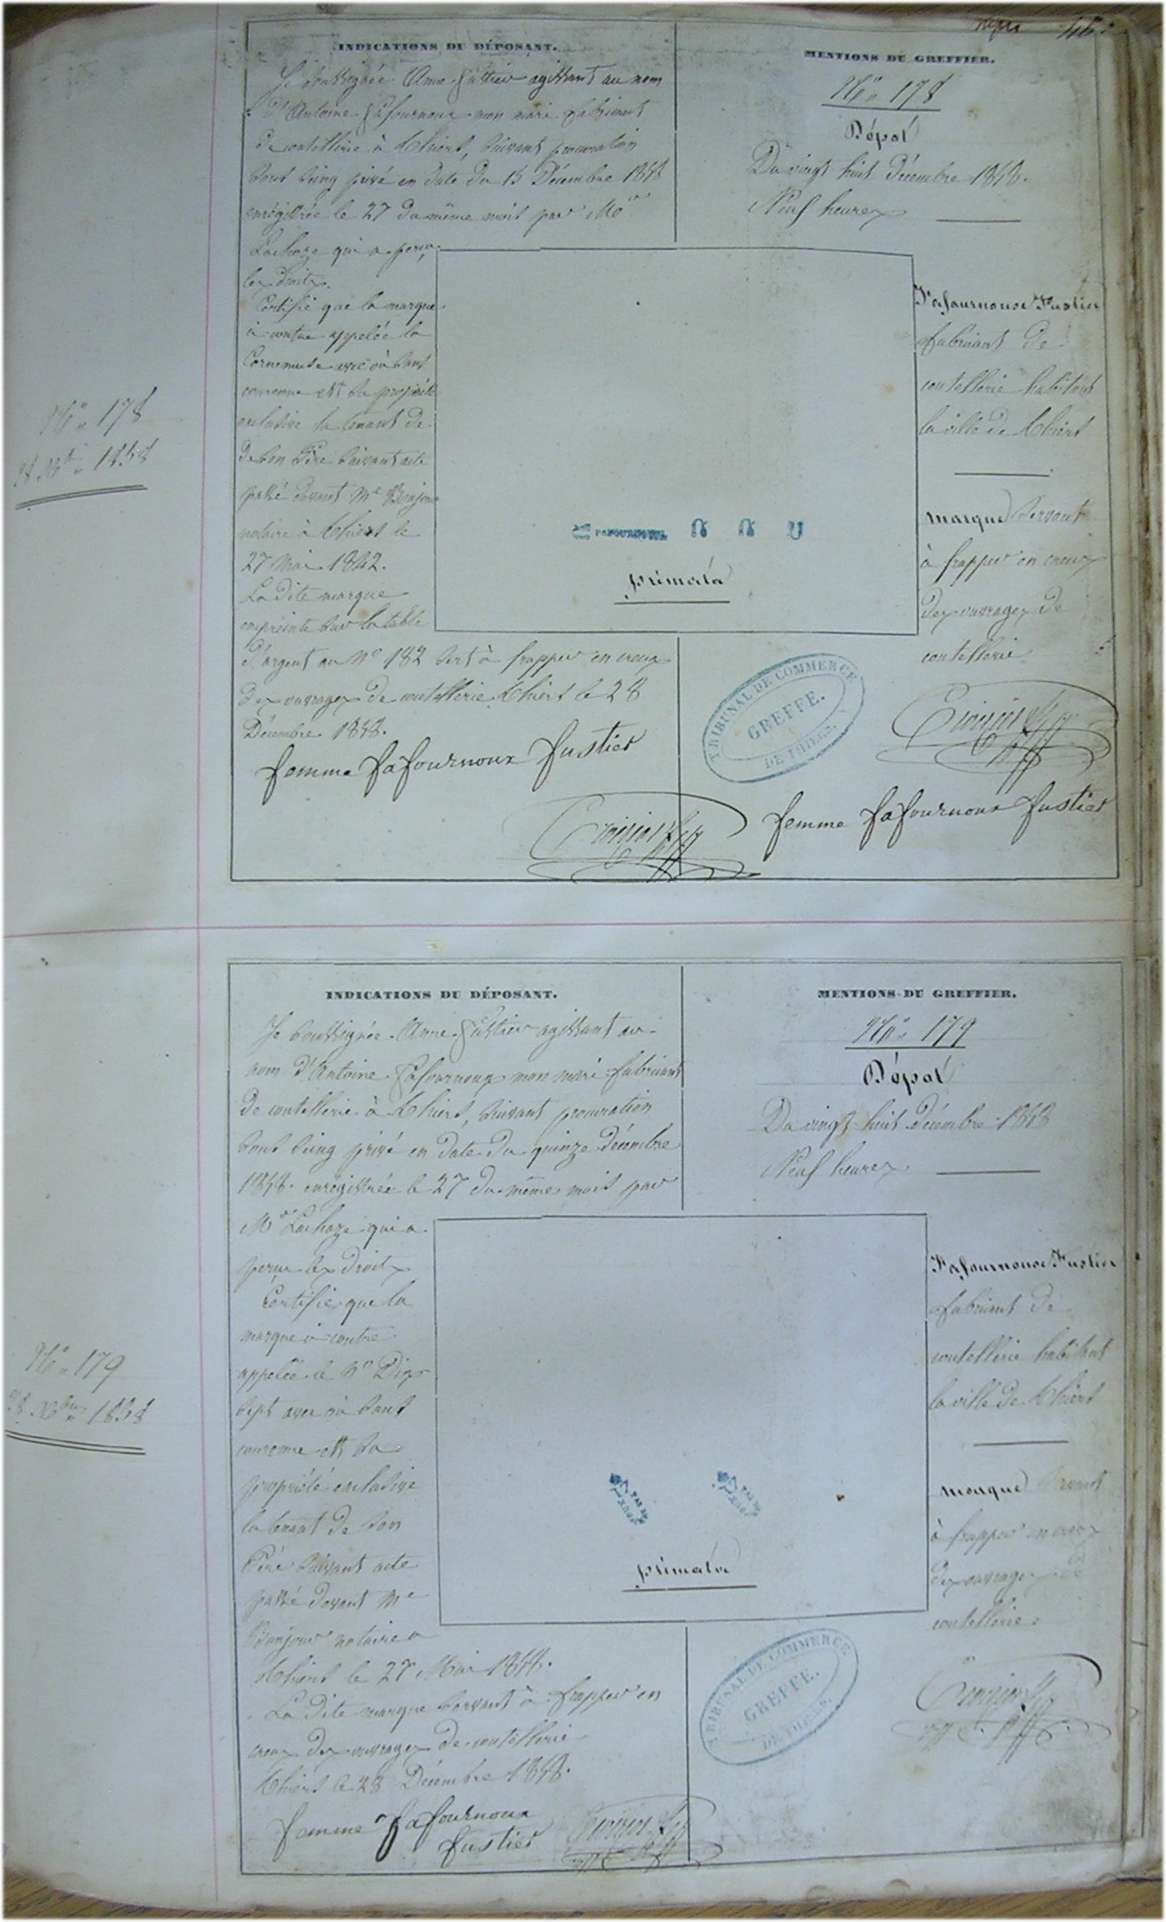 INDICATIONS DU DÉPOSANT.
Je soussignée Anne Fustier agissant au nom
d'Antoine Fafournoux mon mari fabricant
de coutellerie à Thiers, suivant procuration
sous seing privé en date du 15 Décembre 1858
enrégistrée le 27 du même mois par Mr
Lachaze qui a perçu
les droits.
Certifie que la marque
ci contre appelée la
Cornemuse avec ou sans
couronne est sa propriété
exclusive la tenant de
de son Père suivant acte
passé devant Me Bonjour
notaire à Thiers le
27 Mai 1842.
La dite marque
empreinte sur la table
d'argent au No 182 sert à frapper en creux
des ouvrages de coutellerie Thiers le 28
Décembre 1858.
femme fafournoux fustier
MENTIONS DU GREFFIER.
No 178
Dépôt
Du vingt huit Décembre 1858.
Neuf heures
Fafournoux Fustier
fabricant de
coutellerie habitant
la ville de Thiers
marque servant
à frapper en creux
des ouvrages de
coutellerie
FAFOURNOUX
primata
TRIBUNAL DE COMMERCE
GREFFE.
DE THIERS.
femme fafournoux fustier
No 178
28 Xbre 1858
INDICATIONS DU DÉPOSANT.
Je soussignée Anne Fustier agissant au
nom d'Antoine Fafournoux mon mari fabricant
de coutellerie à Thiers, suivant procuration
sous seing privé en date du quinze Décembre
1858. enrégistrée le 27 du même mois par
Mr Lachaze qui a
perçu les droits
Certifie que la
marque ci contre
appelée le No Dix
sept avec ou sans
couronne est sa
propriété exclusive
la tenant de son
Père suivant acte
passé devant Me
Bonjour notaire a
Thiers le 27 Mai
La dite marque servant à frapper en
creux des ouvrages de coutellerie
Thiers le 28 Décembre 1858.
femme fafournoux
fustier
MENTIONS DU GREFFIER.
No 179
Dépôt
Du vingt huit décembre 1858
Neuf heures
Fafournoux Fustier
fabricant de
coutellerie habitant
la ville de Thiers
marque servant
à frapper en creux
des ouvrages de
coutellerie.
primata
TRIBUNAL DE COMMERCE
GREFFE.
DE THIERS.
No 179
28 Xbre 1858